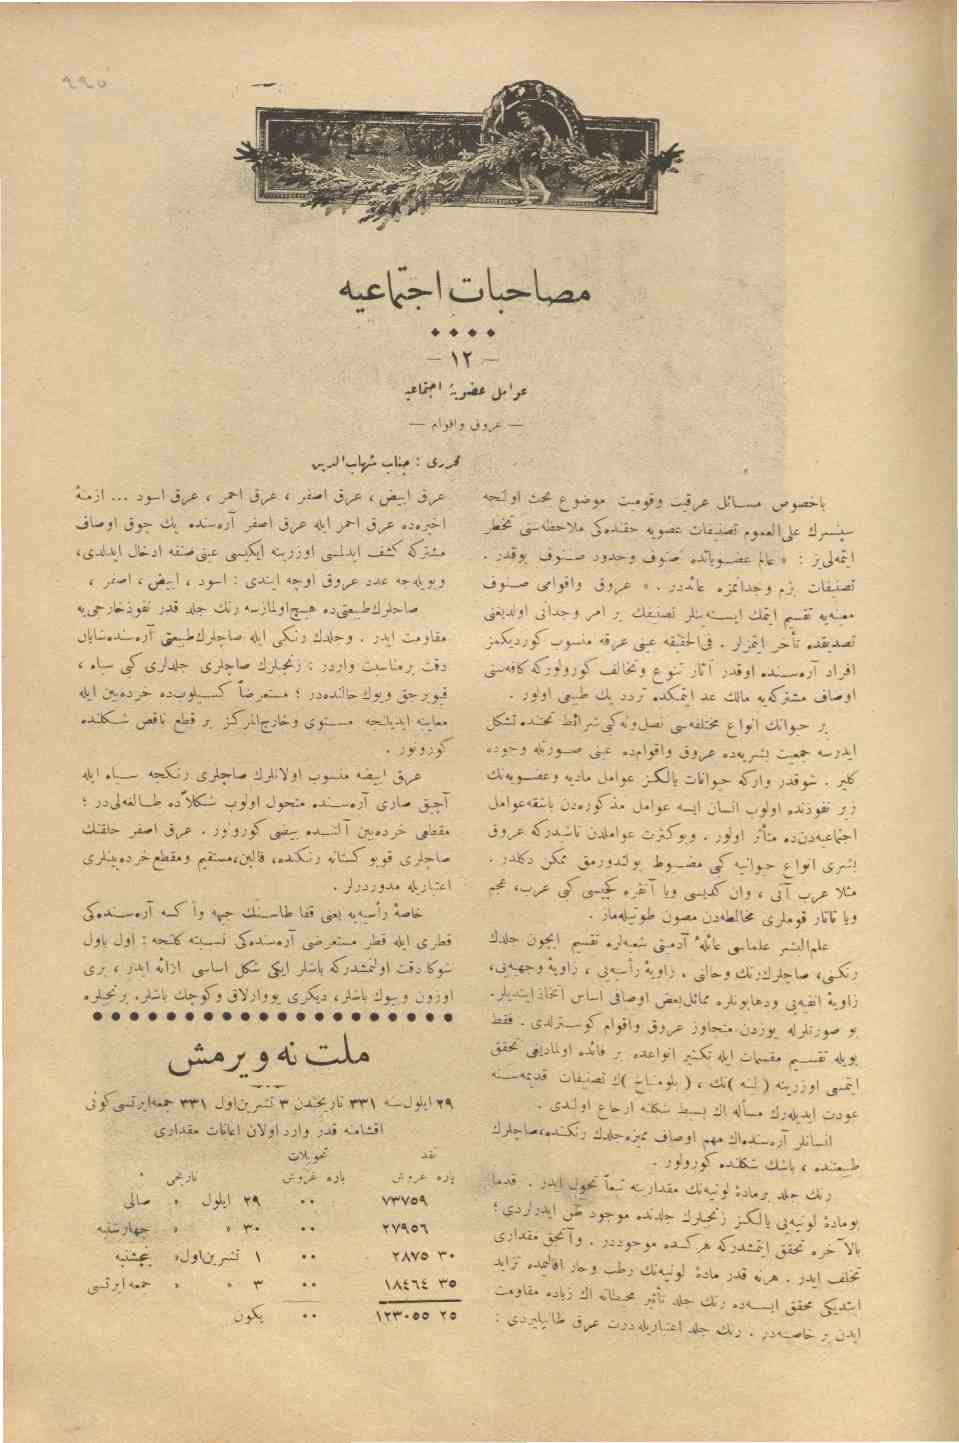 ٩٩٥
مصاحبات اجتماعیه
— ١٢ —
عوامل عضویهٔ اجتماعیه
— عروق واقوام —
محرری : جناب شهاب‌الدین
باخصوص مسائل عرقیت وقومیت موضوع بحث اولنجه
سپنسرك علی‌العموم تصنیفات عضویه حقنده‌كی ملاحظه‌سنی تخطر
ایتمه‌لی‌یز : « عالم عضویاتده صنوف وحدود صنوف یوقدر .
تصنیفات بزم وجدانمزه عائددر . » عروق واقوامی صنوف
معینه‌یه تقسیم ایتمك ایسته‌ینلر تصنیفك بر امر وجدانی اولدیغنی
تصدیقده تأخر ایتمزلر . فی‌الحقیقه عینی عرقه منسوب كوردیكمز
افراد آره‌سنده اوقدر آثار تنوع وتخالف كورولوركه كافه‌سنی
اوصاف مشتركه‌یه مالك عد ایتمكده تردد پك طبیعی اولور .
بر حیوانك انواع مختلفه‌سی نصل ونه‌كی شرائط تحتنده تشكل
ایدرسه جمعیت بشریه‌ده عروق واقوام‌ده عینی صورتله وجوده
كلیر . شوقدر واركه حیوانات یالكز عوامل مادیه وعضویه‌نك
زیر نفوذنده اولوب انسان ایسه عوامل مذكوره‌دن باشقه‌عوامل
اجتماعیه‌دن‌ده متأثر اولور . وبوكثرت عواملدن ناشیدركه عروق
بشری انواع حیوانیه كبی مضبوط بولندورمق ممكن دكلدر .
مثلا عرب آتی ، وان كدیسی ویا آنقره كچیسی كبی عرب، عجم
ویا تاتار قوملری مخالطه‌دن مصون طوتیله‌ماز .
علم‌البشر علماسی عائلهٔ آدمیتی شعبه‌لره تقسیم ایچون جلدك
رنكنی، صاچلرك‌رنك وحالنی . زاویهٔ رأسیه‌یی ، زاویهٔ وجهیه‌یی،
زاویهٔ انفیه‌یی ودهابونلره مماثل‌بعض اوصافی اساس اتخاذ ایتدیلر.
بو صورتلرله یوزدن متجاوز عروق واقوام كوسترلدی . فقط
بویله تقسیم مقسمات ایله تكثیر انواعده بر فائده اولمادیغی تحقق
ایتمسی اوزرینه ( لینه )نك ، ( بلومنباخ )ك تصنیفات قدیمه‌سنه
عودت ایدیله‌رك مسأله اك بسیط شكلنه ارجاع اولندی .
انسانلر آره‌سنده‌اك مهم اوصاف ممیزه‌جلدك رنكنده،صاچلرك
طبیعتنده ، باشك شكلنده كورولور .
رنك جلد برمادهٔ لونیه‌نك مقدارینه تبعاً تحول ایدر . قدما
بومادهٔ لونیه‌یی یالكز زنجیلرك جلدنده موجود ظن ایدرلردی ؛
بالآخره تحقق ایتمشدركه هركسده موجوددر . وآنجق مقداری
تخلف ایدر . هرنه قدر مادهٔ لونیه‌نك رطب وحار اقالیمده تزاید
ایتدیكی محقق ایسه‌ده رنك جلد تأثیر محیطاته اك زیاده مقاومت
ایدن بر خاصه‌در . رنك جلد اعتباریله‌درت عرق طانیلیردی :
عرق ابیض ، عرق اصفر ، عرق احمر ، عرق اسود ... ازمنهٔ
اخیره‌ده عرق احمر ایله عرق اصفر آره‌سنده پك چوق اوصاف
مشتركه كشف ایدلمسی اوزرینه ایكیسی عینی‌صنفه ادخال ایدلدی،
وبویله‌جه عدد عروق اوچه ایندی : اسود ، ابیض ، اصفر ،
صاچلرك‌طبیعتی‌ده هیچ‌اولمازسه رنك جلد قدر نفوذخارجی‌یه
مقاومت ایدر . وجلدك رنكی ایله صاچلرك‌طبیعتی آره‌سنده‌شایان
دقت برمناسبت واردر : زنجیلرك صاچلری جلدلری كبی سیاه ،
قیویرجق ویوك‌حالنده‌در ؛ مستعرضاً كسیلوب‌ده خرده‌بین ایله
معاینه ایدیلنجه مستوی وخارج‌المركز بر قطع ناقص شكلنده
كورونور .
عرق ابیضه منسوب اولانلرك صاچلری رنكجه سیاه ایله
آچیق صاری آره‌سنده متحول اولوب شكلاًده طالغه‌لی‌در ؛
مقطعی خرده‌بین آلتنده بیضی كورونور . عرق اصفر خلقنك
صاچلری قویو كستانه رنكنده، قالین،مستقیم ومقطع‌خرده‌بینلری
اعتباریله مدوردرلر .
خاصهٔ رأسیه‌یه یعنی قفا طاسنك جبهه وا كسه آره‌سنده‌كی
قطری ایله قطر مستعرضی آره‌سنده‌كی نسبته كلنجه : اول باول
شوكا دقت اولنمشدركه باشلر ایكی شكل اساسی ارائه ایدر ، بری
اوزون وبیوك باشلر، دیكری یووارلاق وكوچك باشلر. برنجیلره
ملت نه ویرمش
٢٩ ایلول سنه ٣٣١ تاریخندن ٣ تشرین‌اول ٣٣١ جمعه‌ایرتسی‌كونی
اقشامنه قدر وارد اولان اعانات مقداری
نقد تحویلات
پاره غروش پاره غروش تاریخی
٧٣٧٥٩ ٠٠ ٢٩ ایلول « صالی
٢٧٩٥٦ ٠٠ ٣٠ « « چهارشنبه
٣٠ ٢٨٧٥ ٠٠ ١ تشرین‌اول« پنجشنبه
٣٥ ١٨٤٦٤ ٠٠ ٣ « « جمعه ایرتسی
٢٥ ١٢٣٠٥٥ ٠٠ یكون